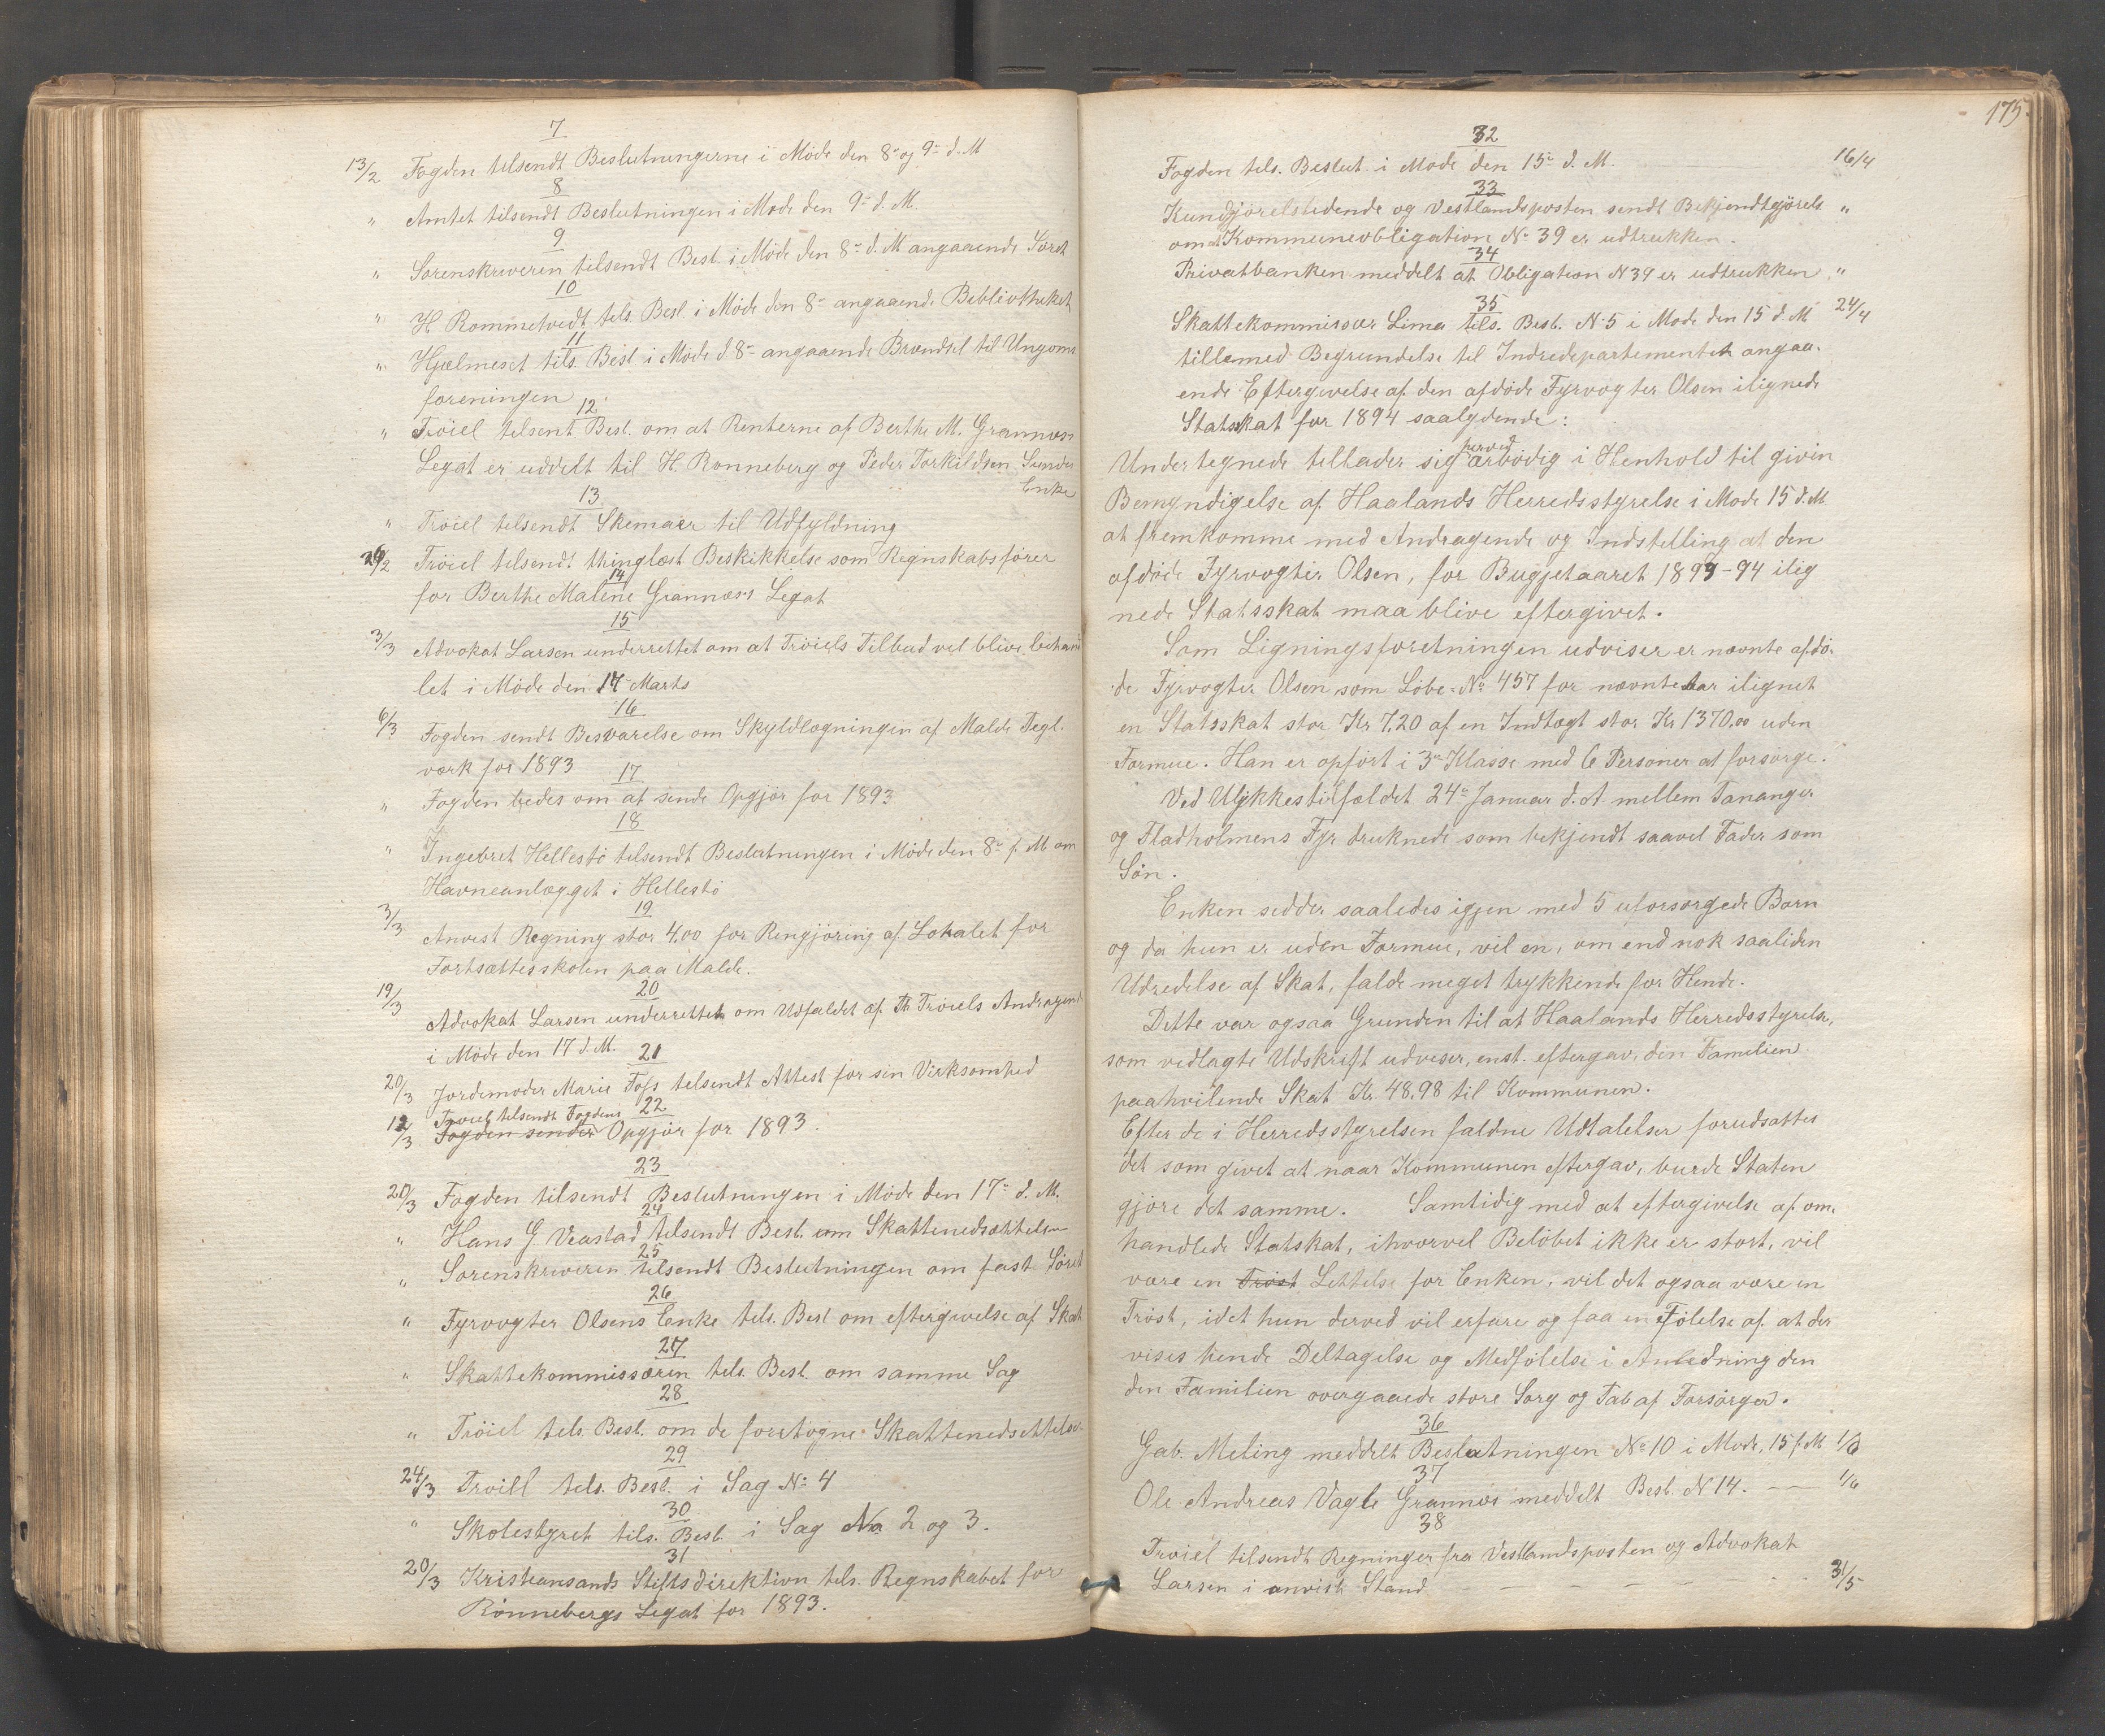 7
13/2 Fogden tilsendt Beslutningerne i Møde den 8de og 9de d. M
8
" Amtet tilsendt Beslutningen i Møde den 9de d. M.
9
" Sorenskriveren tilsendt Besl. i Møde den 8de d. M angaaende Søret
10
" H. Rommetvedt tils. Besl. i Møde den 8de angaaende Bibliotheket
11
" Hjælmeset tils. Besl i Møde d 8de angaaende Brændsel til Ungoms
foreningen
12
" Trøiel tilsent Besl. om at Renterne af Berthe M. Grannæss
Legat er uddelt til H. Rønneberg og Peder Torkildsen Sunde
Enke
13
" Trøiel tilsendt Skemaer til Udfyldning
26/2 Trøiel tilsendt thinglæst Beskikkelse som Regnskabsfører
14
for Berthe Maline Grannæss Legat
15
3/3 Advokat Larsen underrettet om at Trøiels Tilbud vil blive behand
let i Møde den 17 Marts
16
6/3 Fogden sendt Besvarelse om Skyldlægningen af Malde Tegl.
værk for 1893
17
" Fogden bedes om at sende Opgjør for 1893
18
" Ingebret Hellestø tilsendt Beslutningen i Møde den 8de f. M om
Havneanlægget i Hellestø
19
3/3 Anvist Regning stor 4.00 for Rengjøring af Lokalet for
Fortsættesskolen paa Malde.
20
19/3 Advokat Larsen underrettet om Udfaldet af Th Trøiels Andragende
i Møde den 17 d. M.
21
20/3 Jordemoder Marie Foss tilsendt Attest for sin Virksomhed
Trøiel tilsendt Fogdens 22
12/3 Fogden sender Opgjør for 1893.
23
20/3 Fogden tilsendt Beslutningen i Møde den 17de d. M.
24
" Hans G Veastad tilsendt Besl. om Skattenedsættelsen
25
" Sorenskriveren tilsendt Beslutningen om fast Søret
26
" Fyrvogter Olsens Enke tils. Besl om eftergivelse af Skat
27
" Skattekommissæren tils. Besl. om samme Sag
28
" Trøiel tels. Besl. om de foretogne Skattenedsettelser
29
24/3 Trøiel tels. Besl. i Sag No 4
30
" Skolestyret tils. Besl. i Sag No 2 og 3.
31
20/3 Kristiansands Stiftsdirektion tils. Regnskabet for
Rønnebergs Legat for 1893.
175.
32
Fogden tels. Beslut i Møde den 15de d. M. 16/4
33
Kundgjørelstidende og Vestlandsposten sendt Bekjendtgjørels "
om at Kommuneobligation No 39 er udtrukken.
34
Privatbanken meddelt at Obligation N 39 er udtrukken "
35
Skattekommissær Lima tils. Besl. No 5 i Møde den 15 d. M 24/4
tillemed Begrundelse til Indredepartementet angaa-
ende Eftergivelse af den afdøde Fyrvogter Olsen ilignede
Statsskat for 1894 saalydende:
herved
Undertegnede tillader sig ærbødig i Henhold til given
Bemyndigelse af Haalands Herredsstyrelse i Møde 15 d. M
at fremkomme med Andragende og Indstelling at den
afdøde Fyrvogter Olsen, for Bugjetaaret 1893-94 ilig
nede Statsskat maa blive eftergivet.
Som Ligningsforetningen udviser er nævnte afdø-
de Fyrvogter Olsen som Løbe-No 457 for nævnte aar ilignet
en Statsskat stor Kr 7,20 af en Indtægt stor Kr 1370,00 uden
Formue. Han er opført i 3de Klasse med 6 Personer at forsørge.
Ved Ulykkestilfældet 24de Januar d. A. mellem Tananger
og Fladholmens Fyr druknede som bekjendt saavel Fader som
Søn.
Enken sedder saaledes igjen med 5 uforsørgede Børn
og da hun er uden Formue, vil en, om end nok saaliden
Udredelse af Skat, falde meget trykkende for Hende.
Dette var ogsaa Grunden til at Haalands Herredsstyrelse,
som vedlagte Udskrift udviser, enst. eftergav, den Familien
paahvilende Skat Kr. 48,98 til Kommunen.
Efter de i Herredsstyrelsen faldne Udtalelser forudsattes
det som givet at naar Kommunen eftergav, burde Staten
gjøre det samme. Samtidig med at eftergivelse af om-
handlede Statskat, ihvorvel Beløbet ikke er stort, vil
være en Trøst Lettelse for Enken, vil det ogsaa være en
Trøst, idet hun derved vil erfare og faa en Følelse af at der
vises hende Deltagelse og Medfølelse i Anledning den
den Familien overgaaede store Sorg og Tab af Forsørger.
36
Gab. Meling meddelt Beslutningen No 10 i Møde, 15 f. M 1/6
37
Ole Andreas Vagle Grannæs meddelt Besl. N 14. — — 1/6
38
Trøiel tilsendt Regninger fra Vestlandsposten og Advokat
Larsen i anvist Stand — — — — 31/5